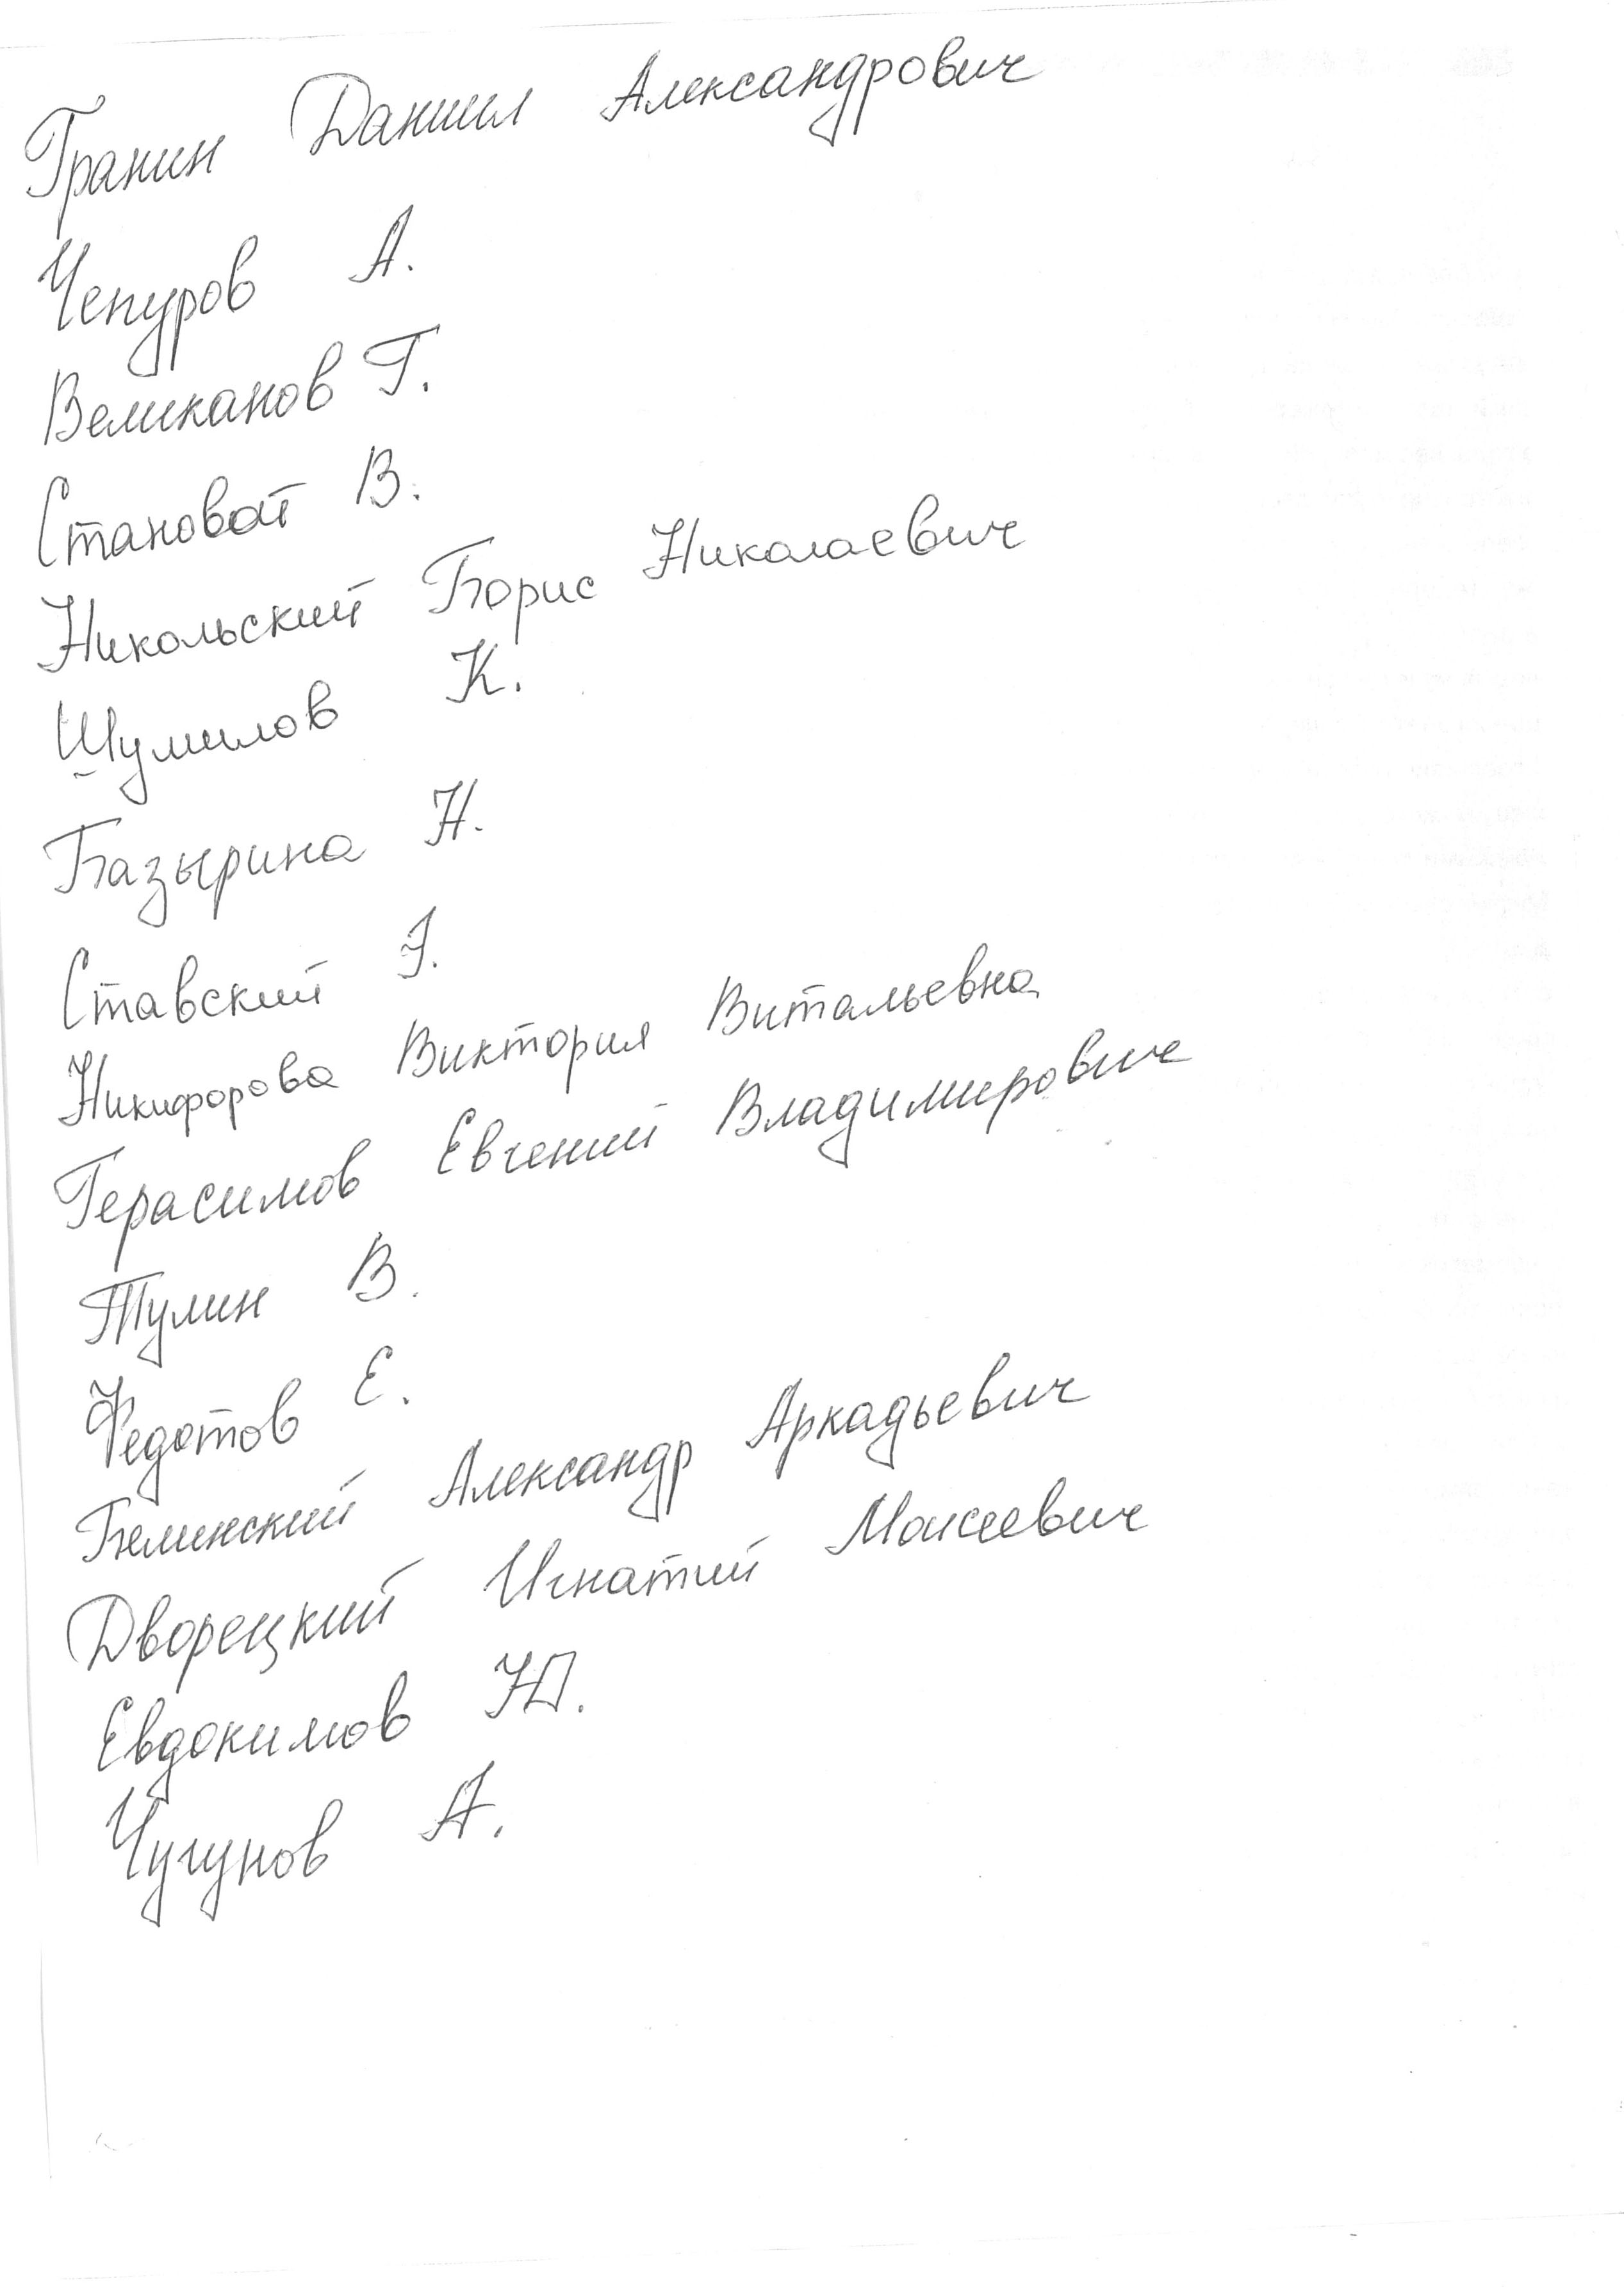 Гранин Даниил Александрович
Чепуров А.
Великанов Г.
Становой В.
Никольский Борис Николаевич
Шумилов К.
Базырина Н.
Ставский Э.
Никифорова Виктория Витальевна
Герасимов Евгений Владимирович
Тулин В.
Федотов Е.
Белинский Александр Аркадьевич
Дворецкий Игнатий Моисеевич
Евдокимов Ю.
Чугунов А.